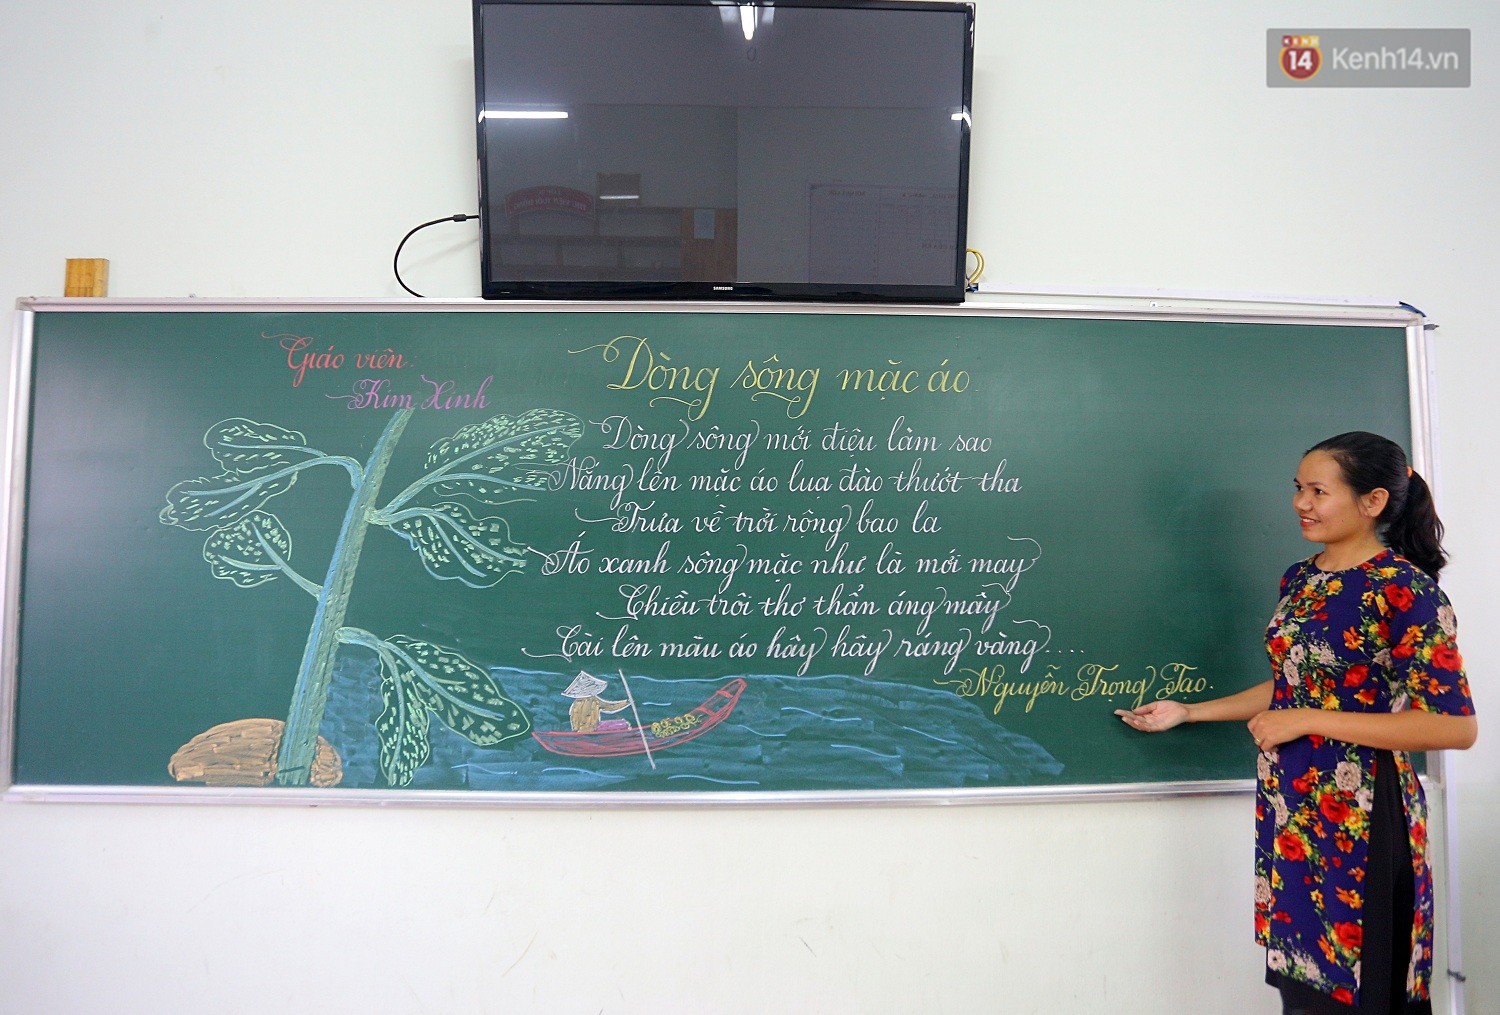 KENH
14 Kenh14.vn
SAMSUNG
Giáo viên:
Kim Xinh
Dòng sông mặc áo.
Dòng sông mới điệu làm sao
Nắng lên mặc áo lụa đào thướt tha
Trưa về trời rộng bao la
Áo xanh sông mặc như là mới may
Chiều trôi thơ thẩn áng mây
Cài lên màu áo hây hây ráng vàng....
Nguyễn Trọng Tạo.